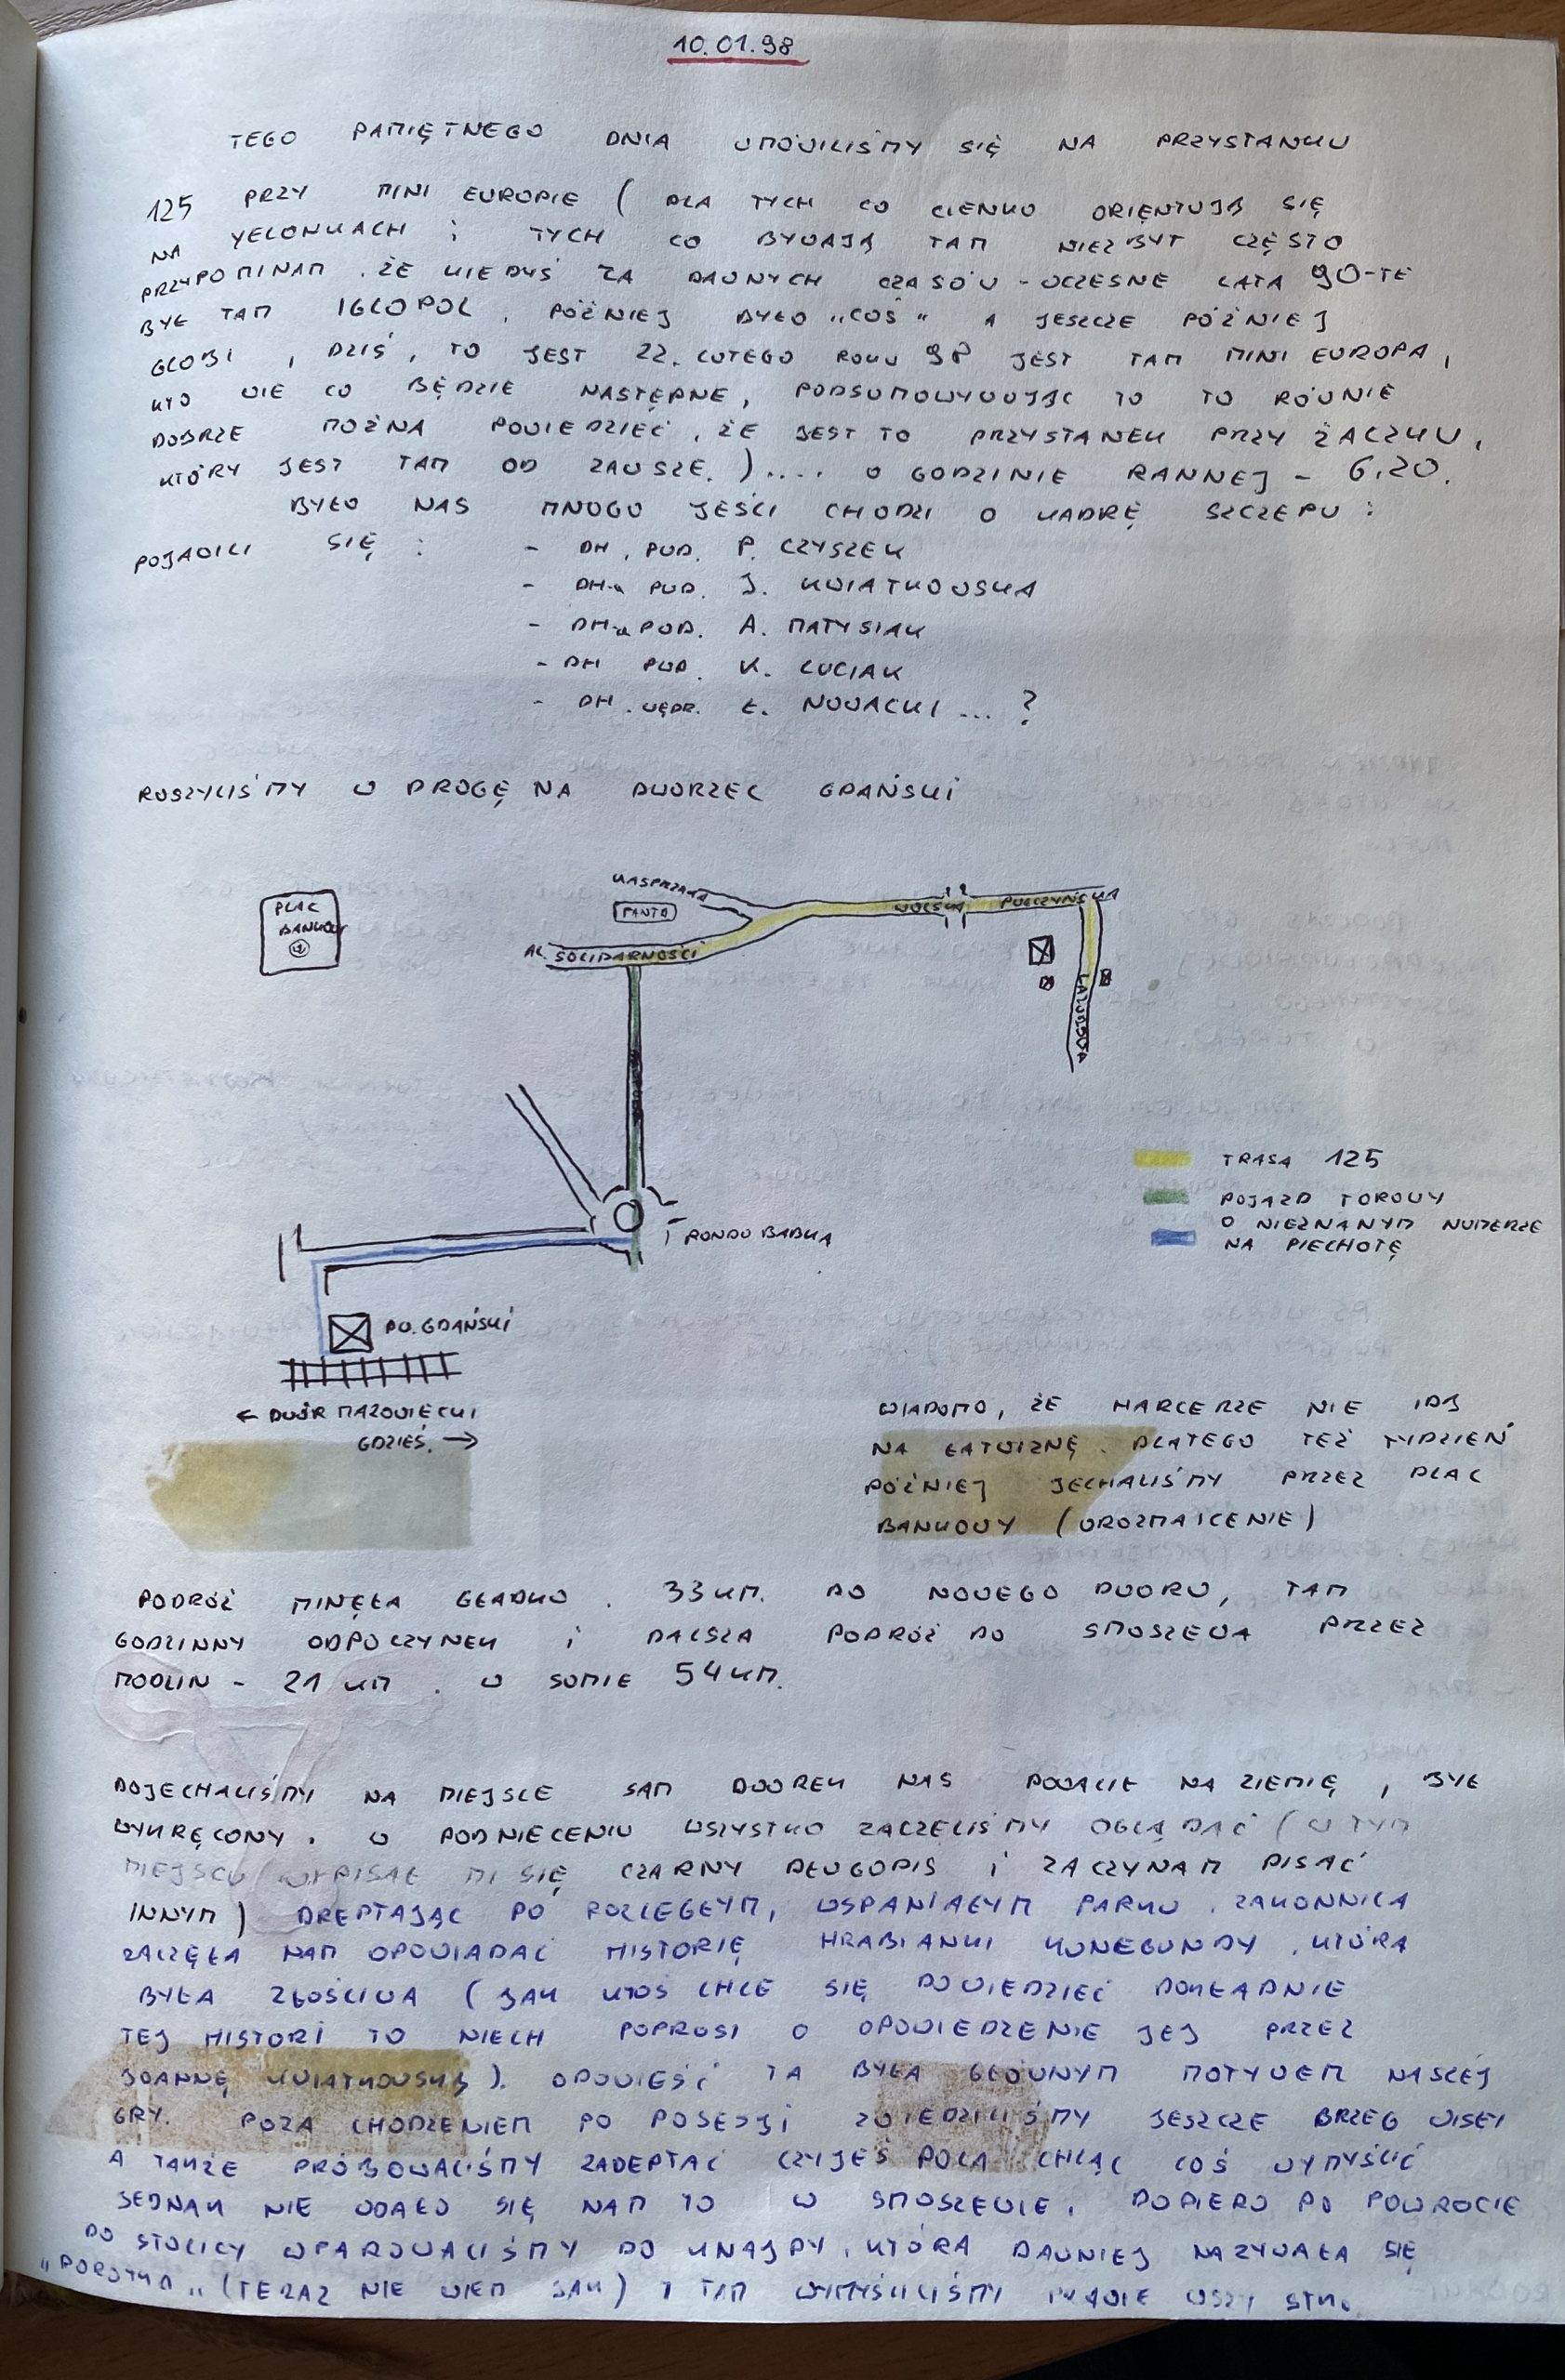 10.01.98
TEGO PAMIĘTNEGO DNIA UMÓWILIŚMY SIĘ NA PRZYSTANKU
125 PRZY MINI EUROPIE ( DLA TYCH CO CIENKO ORIĘNTUJĄ SIĘ
NA YELONKACH i TYCH CO BYWAJĄ TAM NIEZBYT CZĘSTO
PRZYPOMINAM, ŻE KIEDYŚ ZA DAWNYCH CZASÓW - WCZESNE LATA 90-TE
BYŁ TAM IGLOPOL, PÓŹNIEJ BYŁO „COŚ" A JESZCZE PÓŹNIEJ
GLOBI, DZIŚ, TO JEST 22. LUTEGO ROKU 98 JEST TAM MINI EUROPA,
KTO WIE CO BĘDZIE NASTĘPNE, PODSUMOWYWUJĄC TO TO RÓWNIE
DOBRZE MOŻNA POWIEDZIEĆ, ŻE JEST TO PRZYSTANEK PRZY ŻACZKU,
KTÓRY JEST TAM OD ZAWSZE. ).... O GODZINIE RANNEJ - 6.20.
BYŁO NAS MNOGO JEŚLI CHODZI O KADRĘ SZCZEPU :
POJAWILI SIĘ : - DH. PWD. P. CZYSZEK
- DH-a PWD. J. KWIATKOWSKA
- DH-a POD. A. MATYSIAK
- DH PWD. K. LUCIAK
- DH. WĘDR. Ł. NOWACKI ... ?
RUSZYLIŚMY W DROGĘ NA DWORZEC GDAŃSKI
PLAC
BANKOWY
KASPRZAKA
FANTA
AL. SOLIDARNOŚCI
WOLSKA
POŁCZYŃSKA
LAZUROWA
RONDO BABKA
TRASA 125
POJAZD TOROWY
O NIEZNANYM NUMERZE
NA PIECHOTĘ
DW. GDAŃSKI
← DWÓR MAZOWIĘCKI
GDZIEŚ. →
WIADOMO, ŻE HARCERZE NIE IDĄ
NA ŁATWIZNĘ. DLATEGO TEŻ TYDZIEŃ
PÓŹNIEJ JECHALIŚMY PRZEZ PLAC
BANKOWY (UROZMAICENIE)
PODRÓŻ MINĘŁA GŁADKO. 33 KM. DO NOWEGO DWORU, TAM
GODZINNY ODPOCZYNEK i DALSZA PODRÓŻ DO SMOSZEWA PRZEZ
MODLIN - 21 KM. W SUMIE 54 KM.
DOJECHALIŚMY NA MIEJSCE SAM DWOREK NAS POWALIŁ NA ZIEMIĘ, BYŁ
WYKRĘCONY. W PODNIECENIU WSZYSTKO ZACZĘLIŚMY OGLĄDAĆ ( W TYM
MIEJSCU WYPISAŁ MI SIĘ CZARNY DŁUGOPIS i ZACZYNAM PISAĆ
INNYM) DREPTAJĄC PO ROZLEGŁYM, WSPANIAŁYM PARKU. ZAKONNICA
ZACZĘŁA NAM OPOWIADAĆ HISTORIĘ HRABIANKI KUNEGUNDY, KTÓRA
BYŁA ZŁOŚLIWA ( JAK KTOŚ CHCE SIĘ DOWIEDZIEĆ DOKŁADNIE
TEJ HISTORI TO NIECH POPROSI O OPOWIEDZENIE JEJ PRZEZ
JOANNĘ KWIATKOWSKĄ ). OPOWIEŚĆ TA BYŁA GŁÓWNYM MOTYWEM NASZEJ
GRY. POZA CHODZENIEM PO POSESJI ZWIEDZILIŚMY JESZCZE BRZEG WISŁY
A TAKŻE PRÓBOWALIŚMY ZADEPTAĆ CZYJEŚ POLA CHCĄC COŚ WYMYŚLIĆ
JEDNAK NIE UDAŁO SIĘ NAM TO W SMOSZEWIE. DOPIERO PO POWROCIE
DO STOLICY WPAROWALIŚMY DO KNAJPY, KTÓRA DAWNIEJ NAZYWAŁA SIĘ
(TERAZ NIE WIEM JAK) I TAM WYMYŚLILIŚMY PRAWIE WSZYSTKO